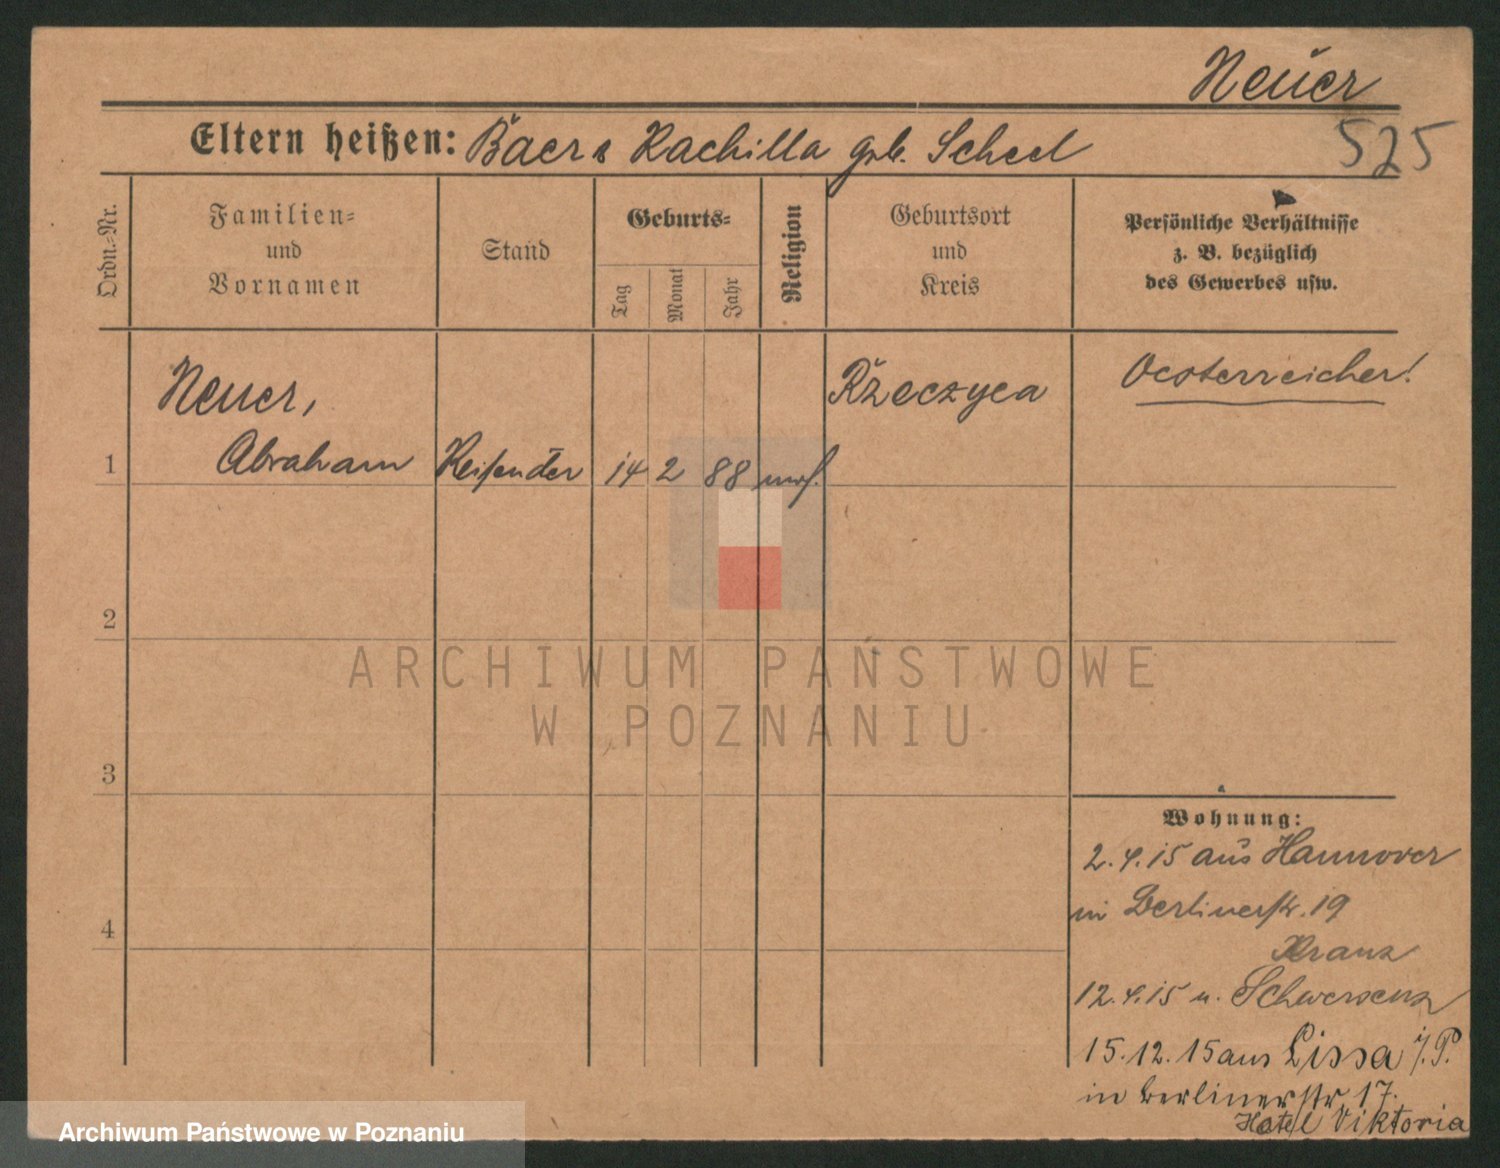 Neuer
525
Eltern heißen: Baer & Rachilla geb. Scheel
Ordn.-Nr.
Familien-
und
Vornamen
Stand
Geburts-
Tag
Monat
Jahr
Religion
Geburtsort
und
Kreis
Persönliche Verhältnisse
z. B. bezüglich
des Gewerbes usw.
Neuer,
Ržeczyca
Oesterreicher!
1
Abraham
Reisender
14
2
88
mos.
2
ARCHIWUM PAŃSTWOWE
W POZNANIU
3
4
Wohnung:
2.4.15 aus Hannover
in Berlinerstr. 19
Kranz
12.4.15 n. Schwersenz
15.12.15 aus Lissa i/P.
in Berlinerstr 17.
Hotel Viktoria
Archiwum Państwowe w Poznaniu